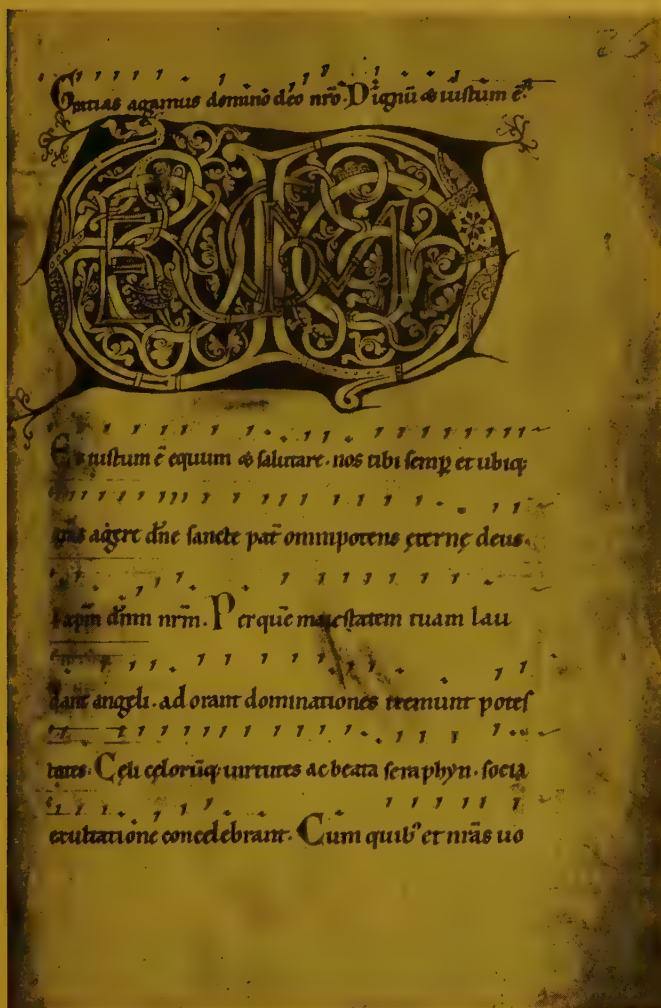 Gratias agamus domino deo nr̄o. Dignū & iustum ē.
UERE DIGNUM
Et iustum ē equum & salutare. nos tibi semꝑ et ubiq;
gr̄as agere dn̄e sancte pat̄ omnipotens ęternę deus.
ꝑ xp̄m dn̄m nr̄m. Per quē maiestatem tuam lau
dant angeli. ad orant dominationes tremunt potes
tates. Cęli cęlorūq; uirtutes ac beata seraphyn. socia
exultatione concelebrant. Cum quib; et nr̄as uo